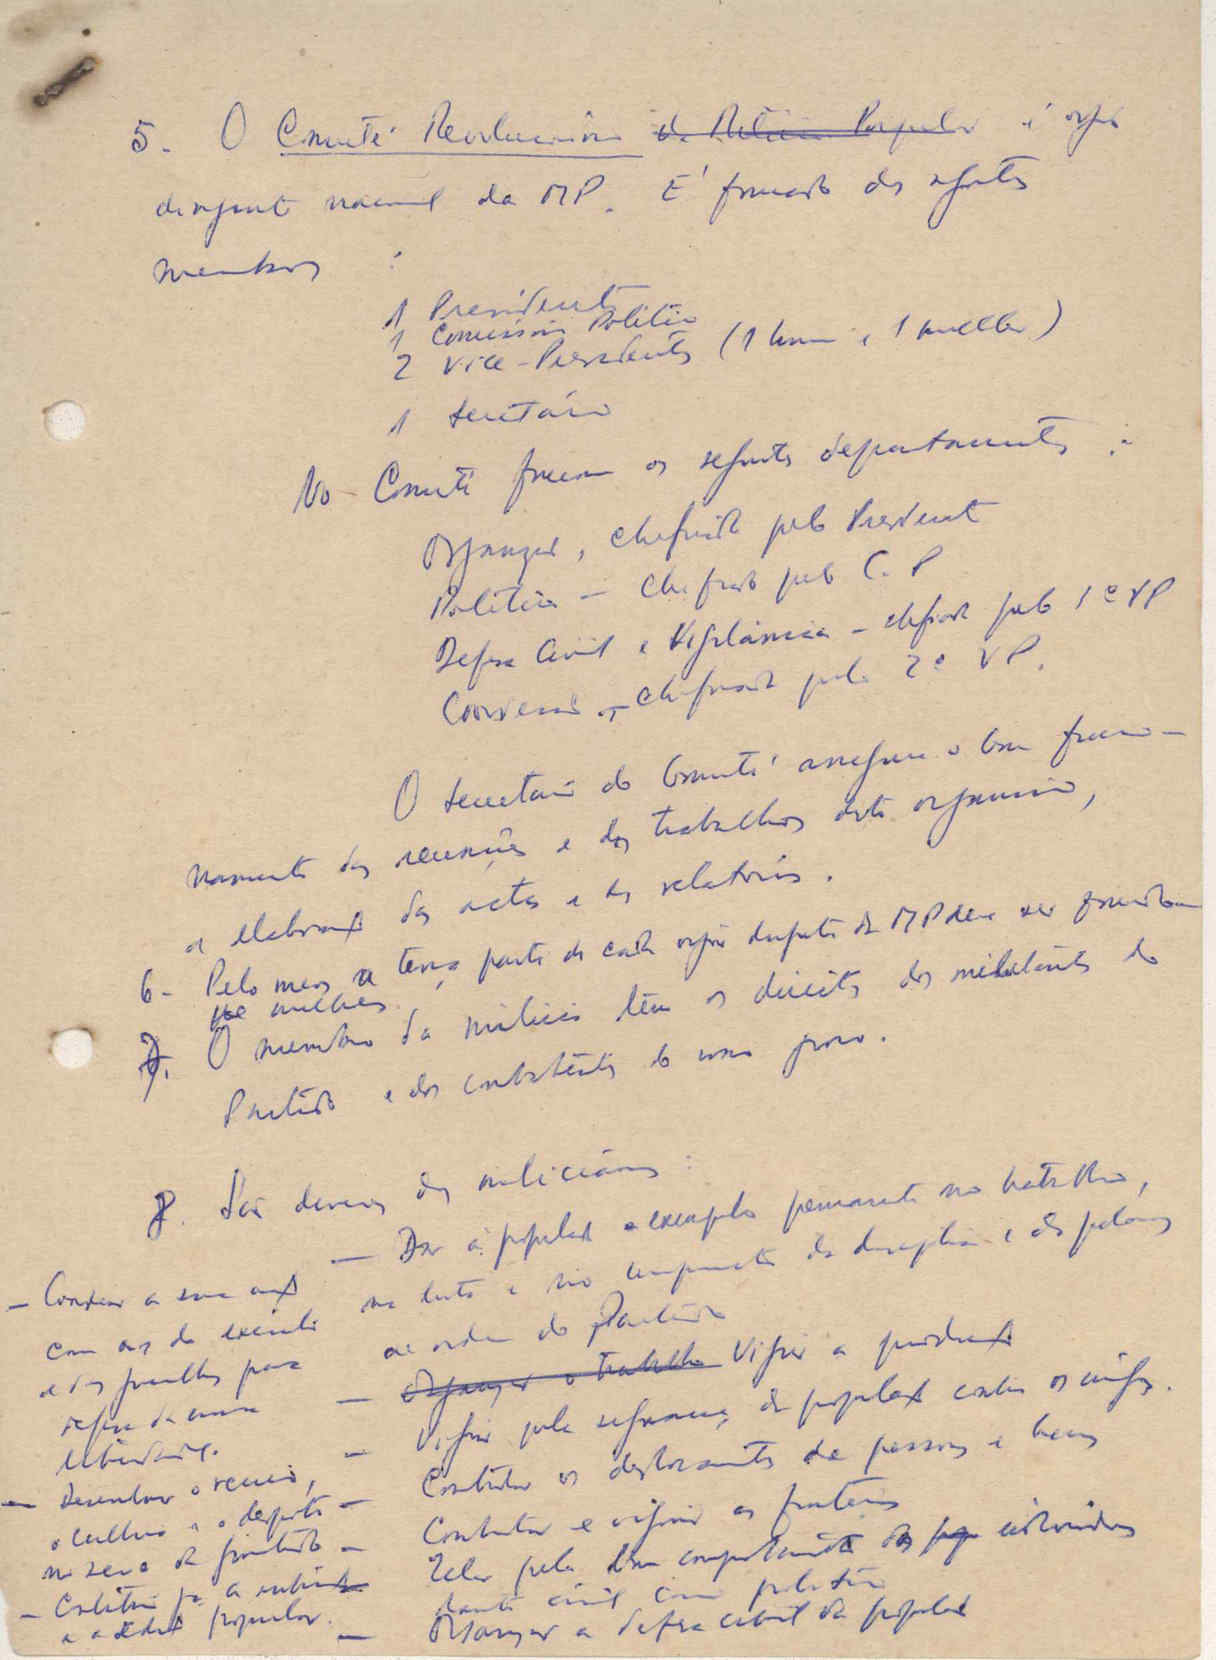 5. O Comité Revolucionário da Milícia Popular é orgão
dirigente nacional da MP. É formado dos seguintes
membros :
1 Presidente
1 Comissário Político
2 Vice-Presidentes (1 homem e 1 mulher)
1 Secretário
No Comité funcionam os seguintes departamentos :
Organização, chefiado pelo Presidente
Política — chefiado pelo C. P
Defesa Civil e Vigilância — chefiado pelo 1º VP
chefiado pelo 2º VP.
O Secretário do Comité assegura o bom funcio-
namento das reuniões e dos trabalhos deste organismo,
a elaboração das actas e dos relatórios.
6- Pelo menos a terça parte de cada orgão dirigente da MP deve ser
de mulheres.
7. O membro da milícia tem os direitos dos militantes do
Partido e dos combatentes do nosso povo.
8. São deveres dos milicianos :
— Dar à população o exemplo permanente no trabalho,
na luta e no cumprimento da disciplina e das palavras
de ordem do Partido
— Organizar o trabalho Vigiar a produção
— Vigiar pela segurança da população contra os inimigos.
Controlar os deslocamentos de pessoas e bens
— Controlar e vigiar as fronteiras
— Zelar pelo bom comportamento dos
— Organizar a defesa civil da população
— a sua acção
com as do exército
e das guerrilhas para
defesa da nossa
— Desenvolver o recreio,
a cultura e o desporto
no seio da juventude
— Contribuir pª a
e a saúde popular.